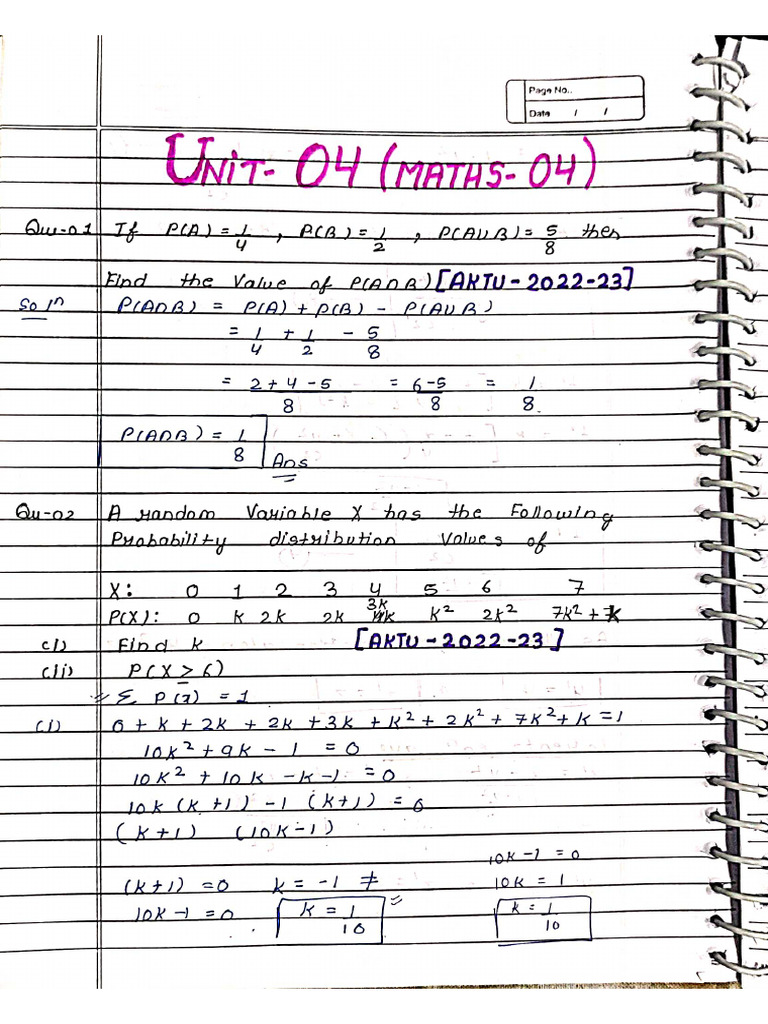 Page No..
Date / /
UNIT- 04 (MATHS-04)
Qu-01 If P(A) = 1/4 , P(B) = 1/2 , P(A∪B) = 5/8 then
Find the Value of P(A∩B) [AKTU-2022-23]
Soln P(A∩B) = P(A) + P(B) - P(A∪B)
= 1/4 + 1/2 - 5/8
= 2+4-5/8 = 6-5/8 = 1/8.
P(A∩B) = 1/8 Ans
Qu-02 A random Variable X has the Following
Probability distribution Values of
X: 0 1 2 3 4 5 6 7
P(X): 0 k 2k 2k 3k k² 2k² 7k²+k
(i) Find k [AKTU-2022-23]
(ii) P(X ≥ 6)
Σ P(7) = 1
(i) 0+k+2k+2k+3k+k²+2k²+7k²+k=1
10k²+9k-1 = 0
10k²+10k-k-1 = 0
10k(k+1)-1(k+1) = 0
(k+1) (10k-1)
10k-1 = 0
(k+1) = 0 k = -1 ≠ 10k = 1
10k-1 = 0 k = 1/10 k = 1/10